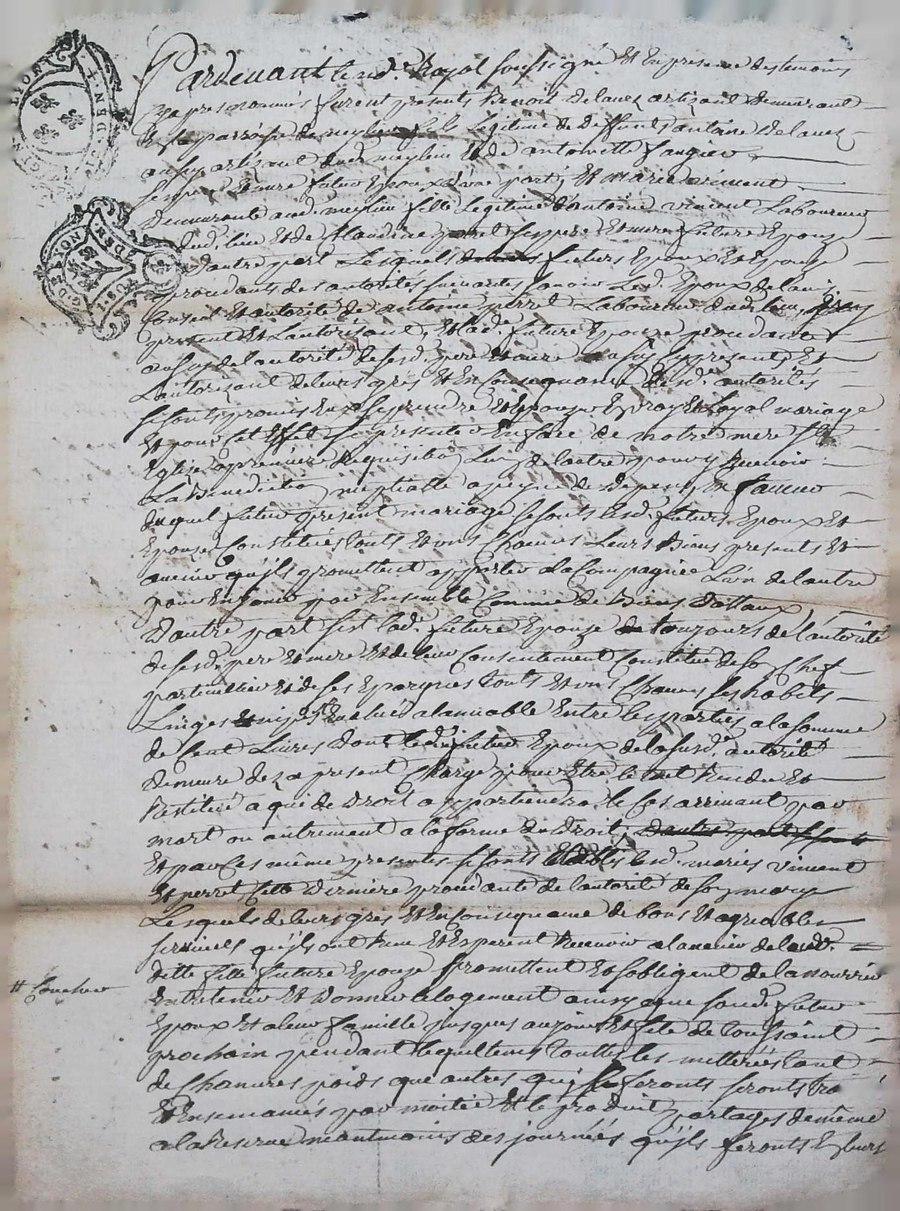 Pardevant le nore. Royal soussigné Et En presence des temoins
cy apres nommés furent presents Benoit Delaues artizant demeurant
En la parroisse de meylieu fils Legitime de deffunt antoine Delaues
aussy artizant dud. meylieu Et de antoinette
ses pere Et mere futur Epoux d'une part, Et marie viriment
Demeurante aud. meylieu fille Legitime d'antoine viriment Laboureur
dud. lieu Et de Claudine perret ses pere Et mere future Epouze
d'autre part Lesquels futurs Epoux Et Epouze
procedants des autorités suivantes scavoir Led. Epoux de l'avis
Conseil Et autorité de antoine perret Laboureur dud. lieu
present Et L'autorisant, Et lade. future Epouze procedante
aussy de l'autorité de sesd. pere Et mere aussy presents Et
L'autorizant de leurs grés Et En Consequance desde. autorités
se sont promis Eux se prendre Et Epouser En vray Et loyal mariage
Et pour Cet Effet se presenter En face de notre mere Ste
Eglise a premiere Requisition L'un de l'autre pour y Recevoir
La Benediction nuptialle a peyne de depens, En faveur
duquel futur present mariage se sonts lesd. futurs Epoux Et
Epouze Constitués touts Et uns Chacuns Leurs Biens presents Et
avenir qu'ils promettent apporter a la Compagnie L'un de l'autre
pour En jouir par Ensemble Comme de Biens Dottaux,
D'autre part s'est lad. future Epouze toujours de l'autorité
de sesd. pere Et mere Et de leur Consentement Constitué de son Chef
particullier Et de ses Epargnes touts Et uns Chacuns ses habits
Linges Et nipes Evalués a l'amiable Entre les parties a la somme
de Cent Livres dont led. futur Epoux de la susd. autorité
demeure dez a present Chargé pour Etre le tout Rendu Et
Restitué a qui de Droit appartiendra, le Cas arrivant par
mort ou autrement a la forme du Droit, D'autre part se sonts
Et par Ces même presentes se sonts Etablis lesd. mariés viriment
Et perret Cette Derniere procedante de l'autorité de son mary
Lesquels de leurs grés Et En Consequance de bons Et agreables
services qu'ils ont Reçu Et Esperent Recevoir a l'avenir de lad.
dette fille future Epouze promettent Et s'obligent de la nourrir
# Coucher
Entretenir Et Donner le logement ainsy que sond. futur
Epoux Et a leur famille jusques au jour Et fete de toussaint
prochain pendant lequel tems touttes les metterées tant
de Chanvres poids que autres qu'ils feronts seronts
Et Ensemancés par moitié Et le produit partagés de même
a la Reserve neantmoins des journées qu'ils feronts